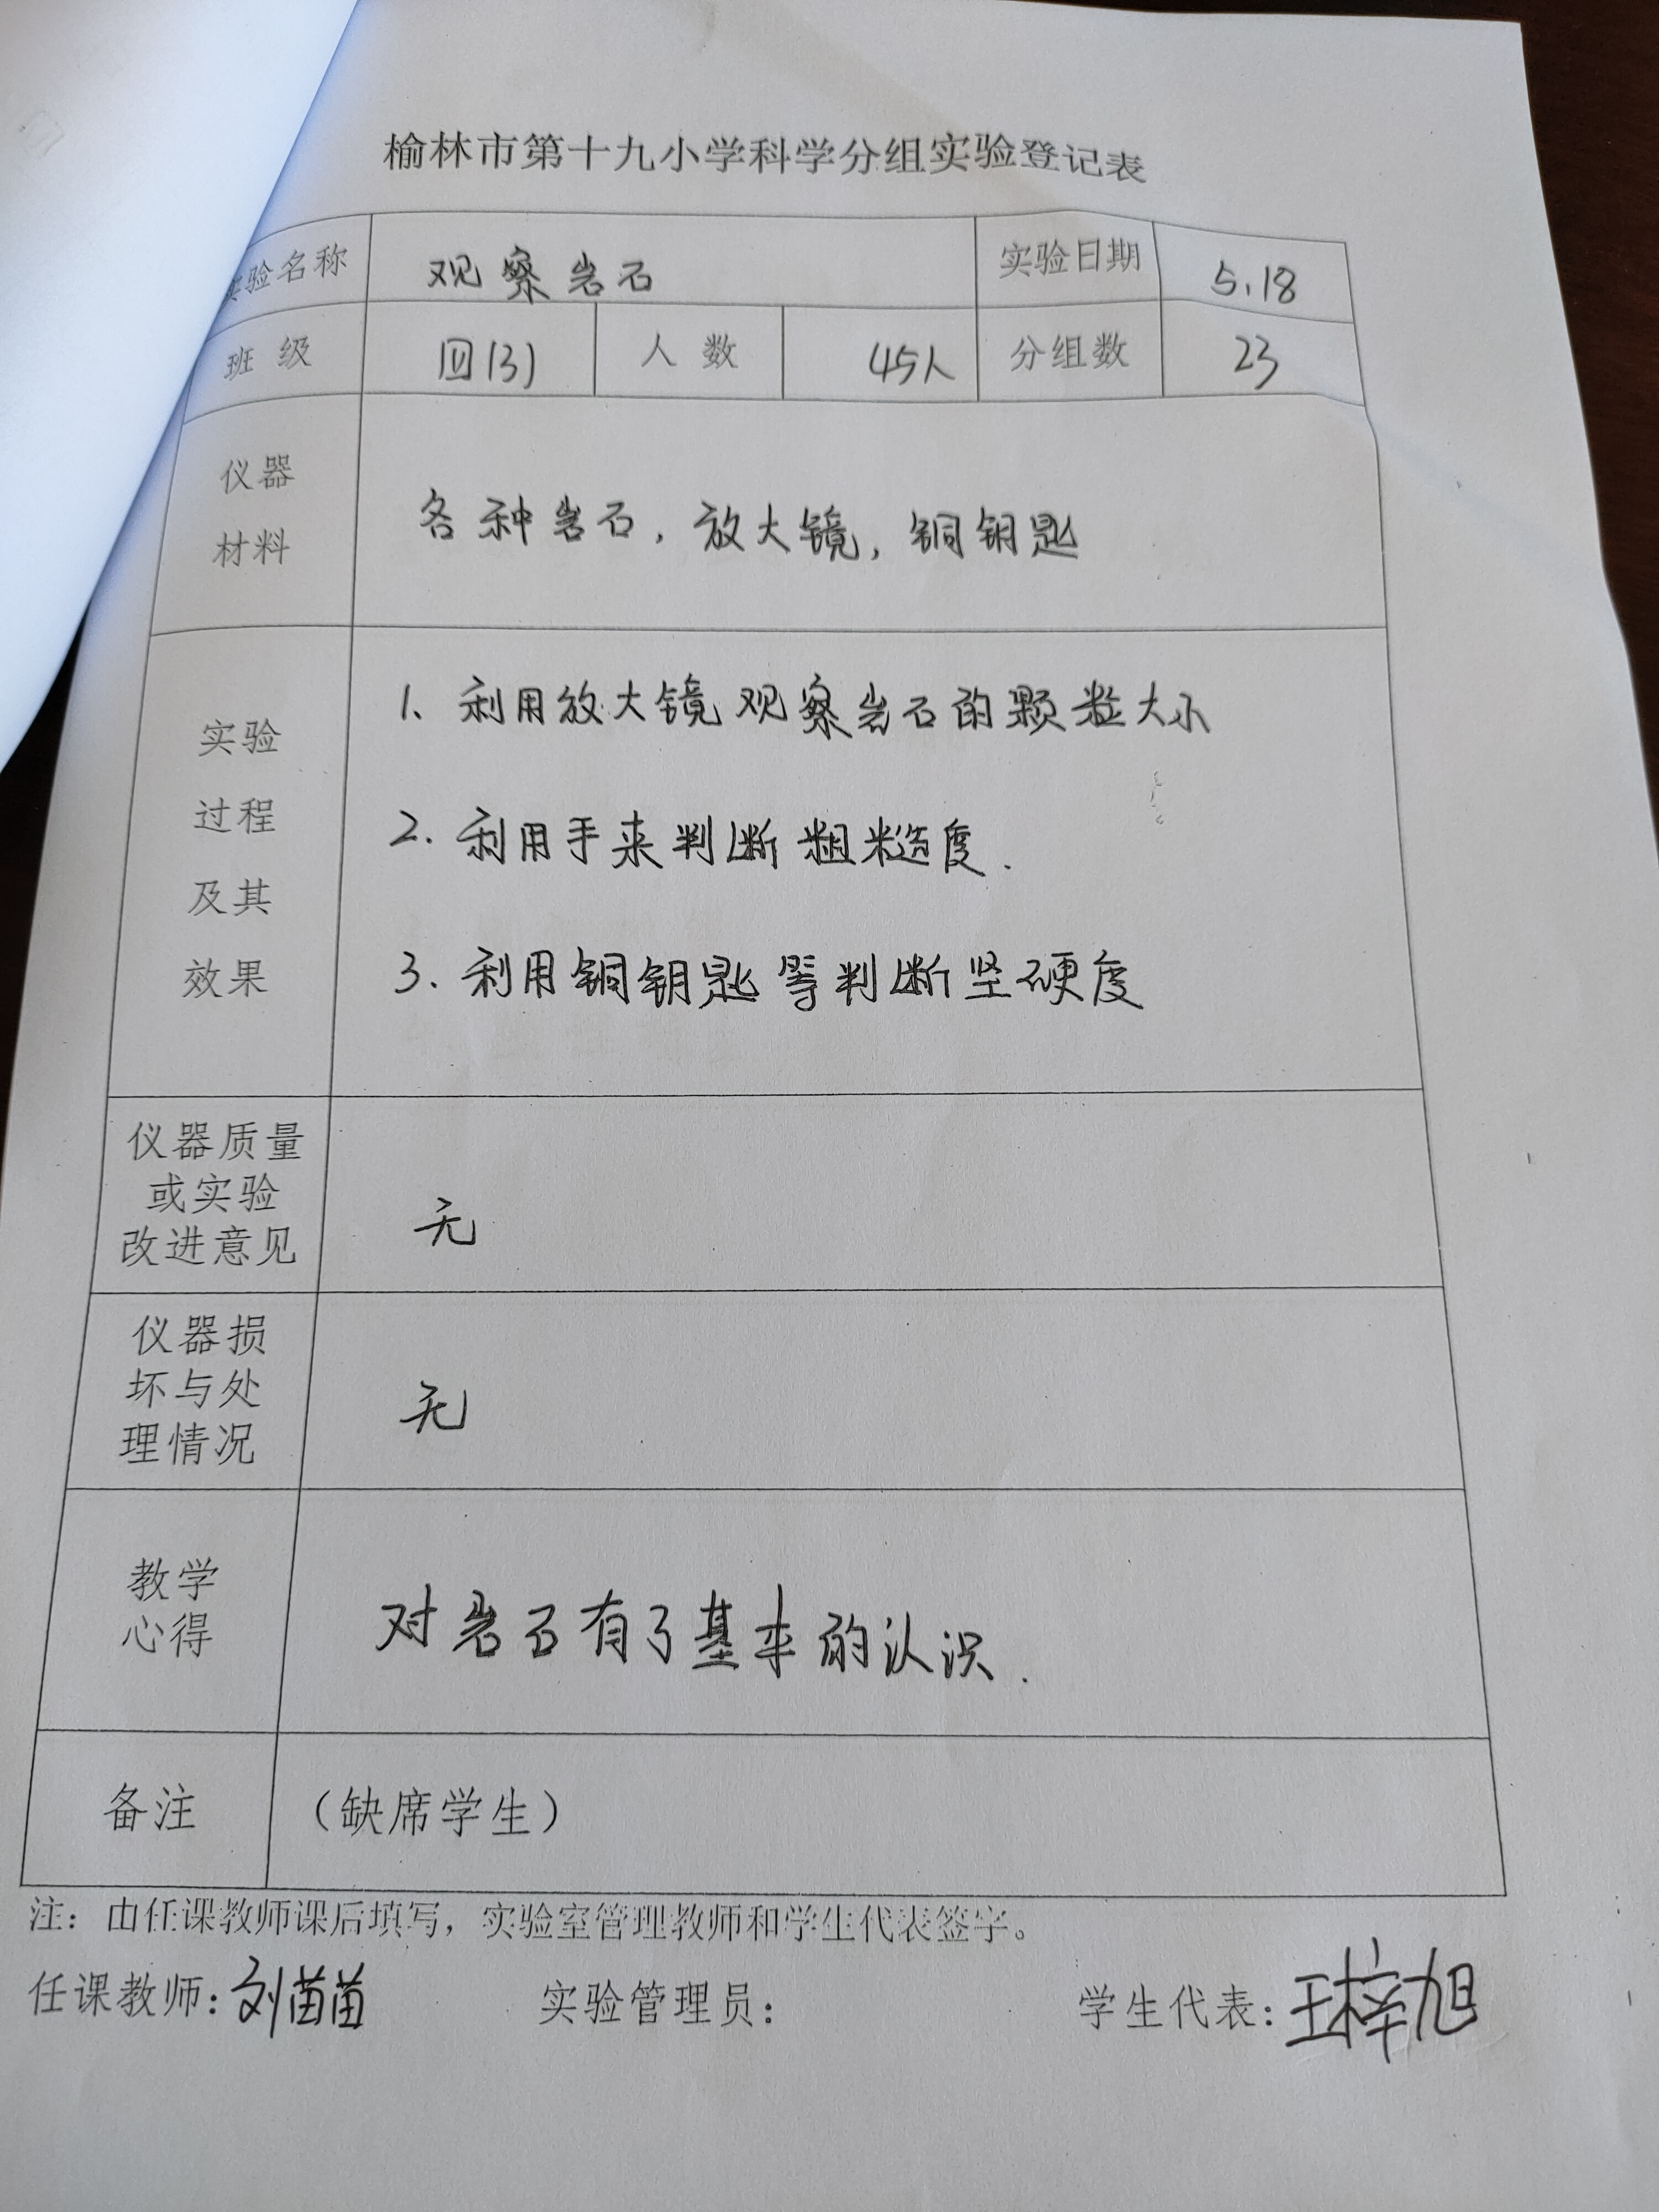 榆林市第十九小学科学分组实验登记表
实验名称 观察岩石 实验日期 5.18
班级 四(3) 人数 45人 分组数 23
仪器
材料
各种岩石,放大镜,铜钥匙
实验
过程
及其
效果
1、利用放大镜观察岩石的颗粒大小
2.利用手来判断粗糙度.
3.利用铜钥匙等判断坚硬度
仪器质量
或实验
改进意见
无
仪器损
坏与处
理情况
无
教学
心得
对岩石有了基本的认识.
备注 (缺席学生)
注:由任课教师课后填写,实验室管理教师和学生代表签字。
任课教师:刘苗苗 实验管理员: 学生代表:王梓旭